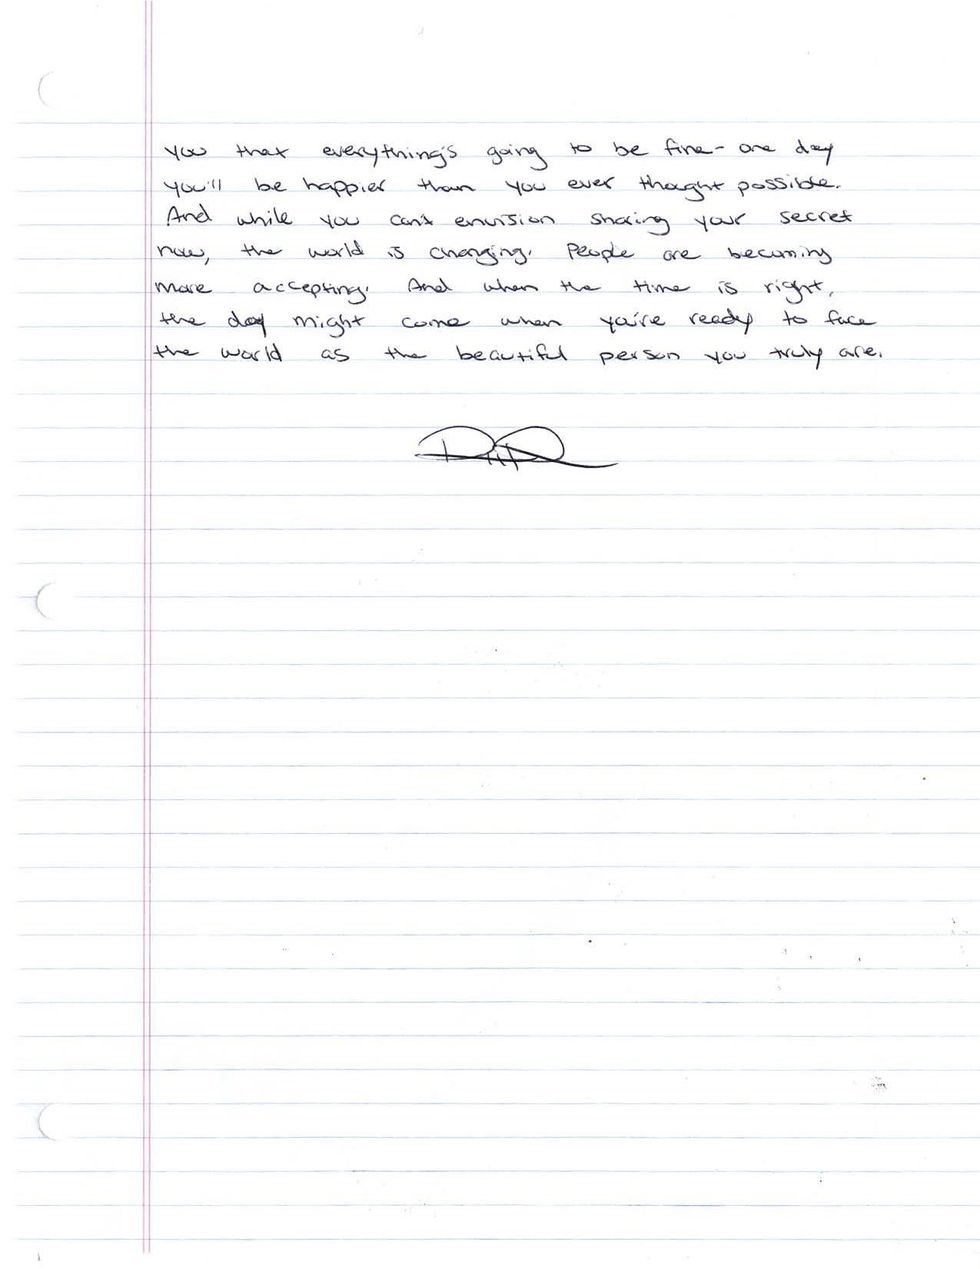 you that everything's going to be fine - one day
you'll be happier than you ever thought possible.
And while you can't envision sharing your secret
now, the world is changing. People are becoming
more accepting. And when the time is right,
the day might come when you're ready to face
the world as the beautiful person you truly are.